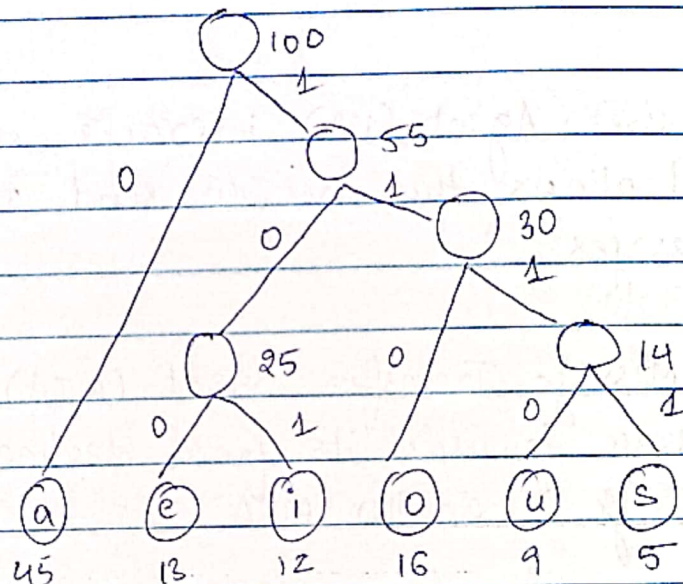 100
1
55
0
1
0
30
1
25
0
14
0
1
0
1
a e i o u s
45 13 12 16 9 5